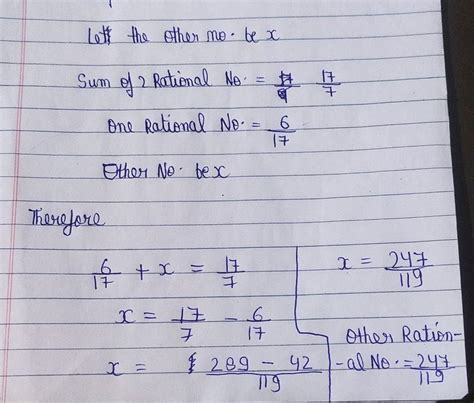 Let the other no. be x
Sum of 2 Rational No. = 17/7
One Rational No. = 6/17
Other No. be x
Therefore
6/17 + x = 17/7
x = 17/7 - 6/17
x = 289 - 42/119
x = 247/119
Other Ration-
-al No. = 247/119